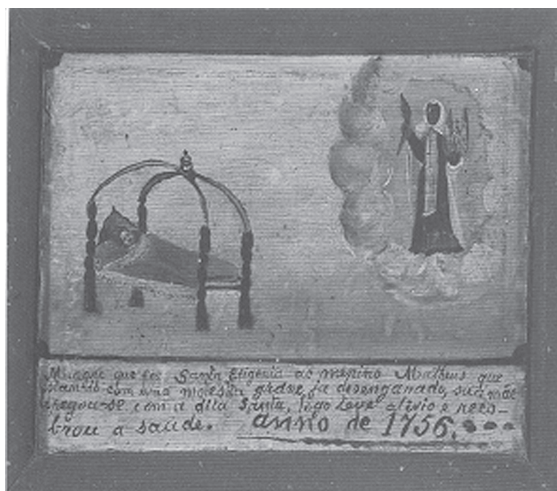 que fes Santa Efigenia ao menino Matheus que
com uma molestia grave ja desenganado, sua mãe
pegou-se com a dita Santa, logo teve alivio e reco-
brou a saude. anno de 1756.